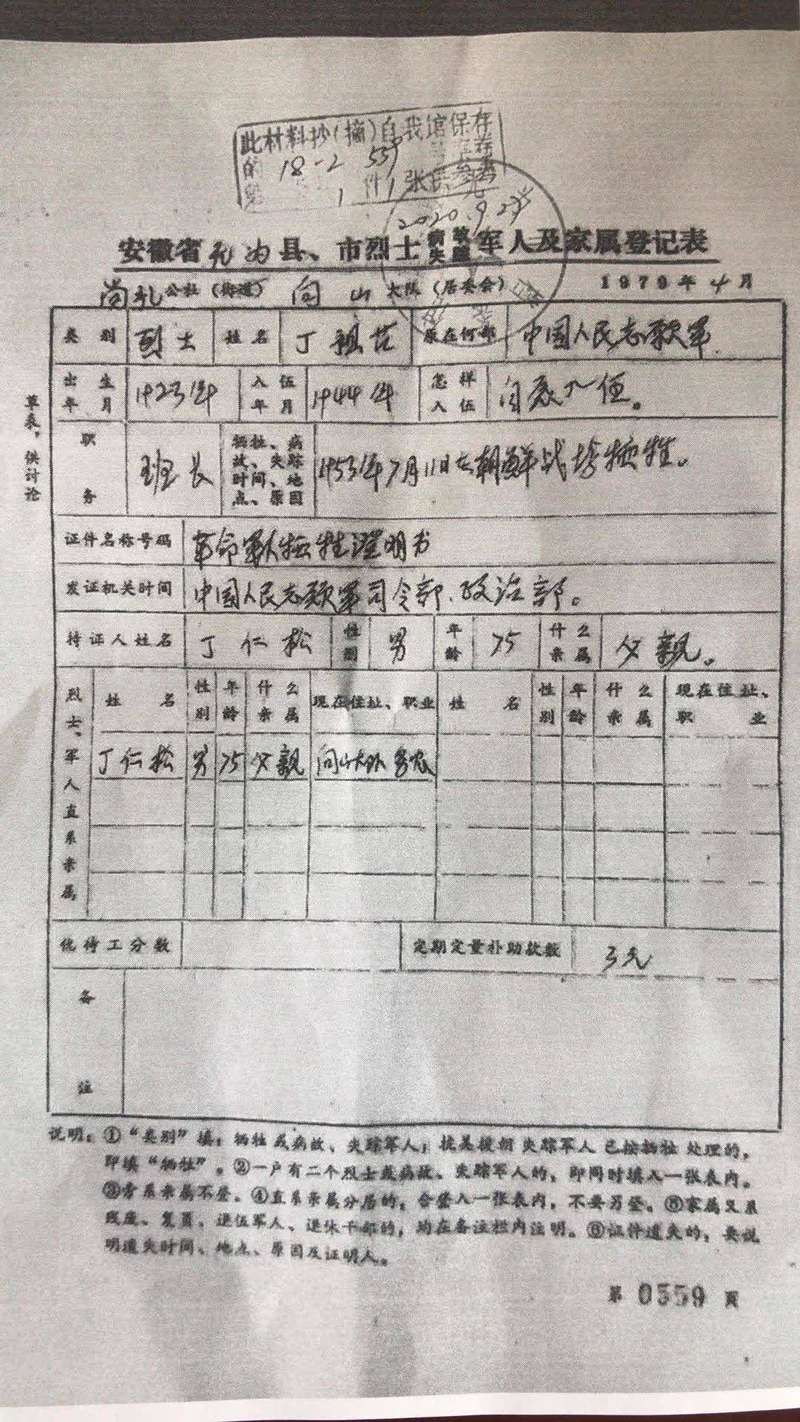 此材料抄(摘)自我馆保存
的 18-2 559
第 1 件 1 张供参考
2020.9.27
安徽省无为县、市烈士病故失踪军人及家属登记表
尚礼公社(街道) 向山大队(居委会) 1979年4月
草表,供讨论
类别 烈士 姓名 丁祖 原在何部 中国人民志愿军
出生年月 1923年 入伍年月 1944年 怎样入伍 自愿入伍。
职务 班长 牺牲、病故、失踪时间、地点、原因 1953年7月11日在朝鲜战场牺牲。
证件名称号码 革命军人牺牲证明书
发证机关时间 中国人民志愿军司令部、政治部。
持证人姓名 丁仁松 性别 男 年龄 75 什么亲属 父亲。
烈士、军人直系亲属
姓名 性别 年龄 什么亲属 现在住址、职业 姓名 性别 年龄 什么亲属 现在住址、职业
丁仁松 男 75 父亲 向山大队 务农
优待工分数 定期定量补助款数 3元
备注
说明:①“类别”填:牺牲或病故、失踪军人;抗美援朝失踪军人已按牺牲处理的,
即填“牺牲”。②一户有二个烈士或病故、失踪军人的,即同时填入一张表内。
③旁系亲属不登。④直系亲属分居的,合登入一张表内,不要另登。⑤家属又系
残废、复员、退伍军人、退休干部的,均在备注栏内注明。⑥证件遗失的,要说
明遗失时间、地点、原因及证明人。
第 0559 页